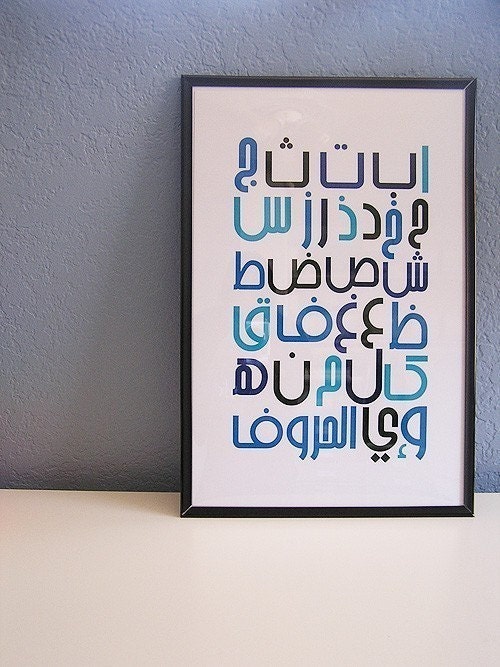 ا ب ت ث ج
ح خ د ذ ر ز س
ش ص ض ط
ظ ع غ ف ق
ك ل م ن ه
و إ ي الحروف